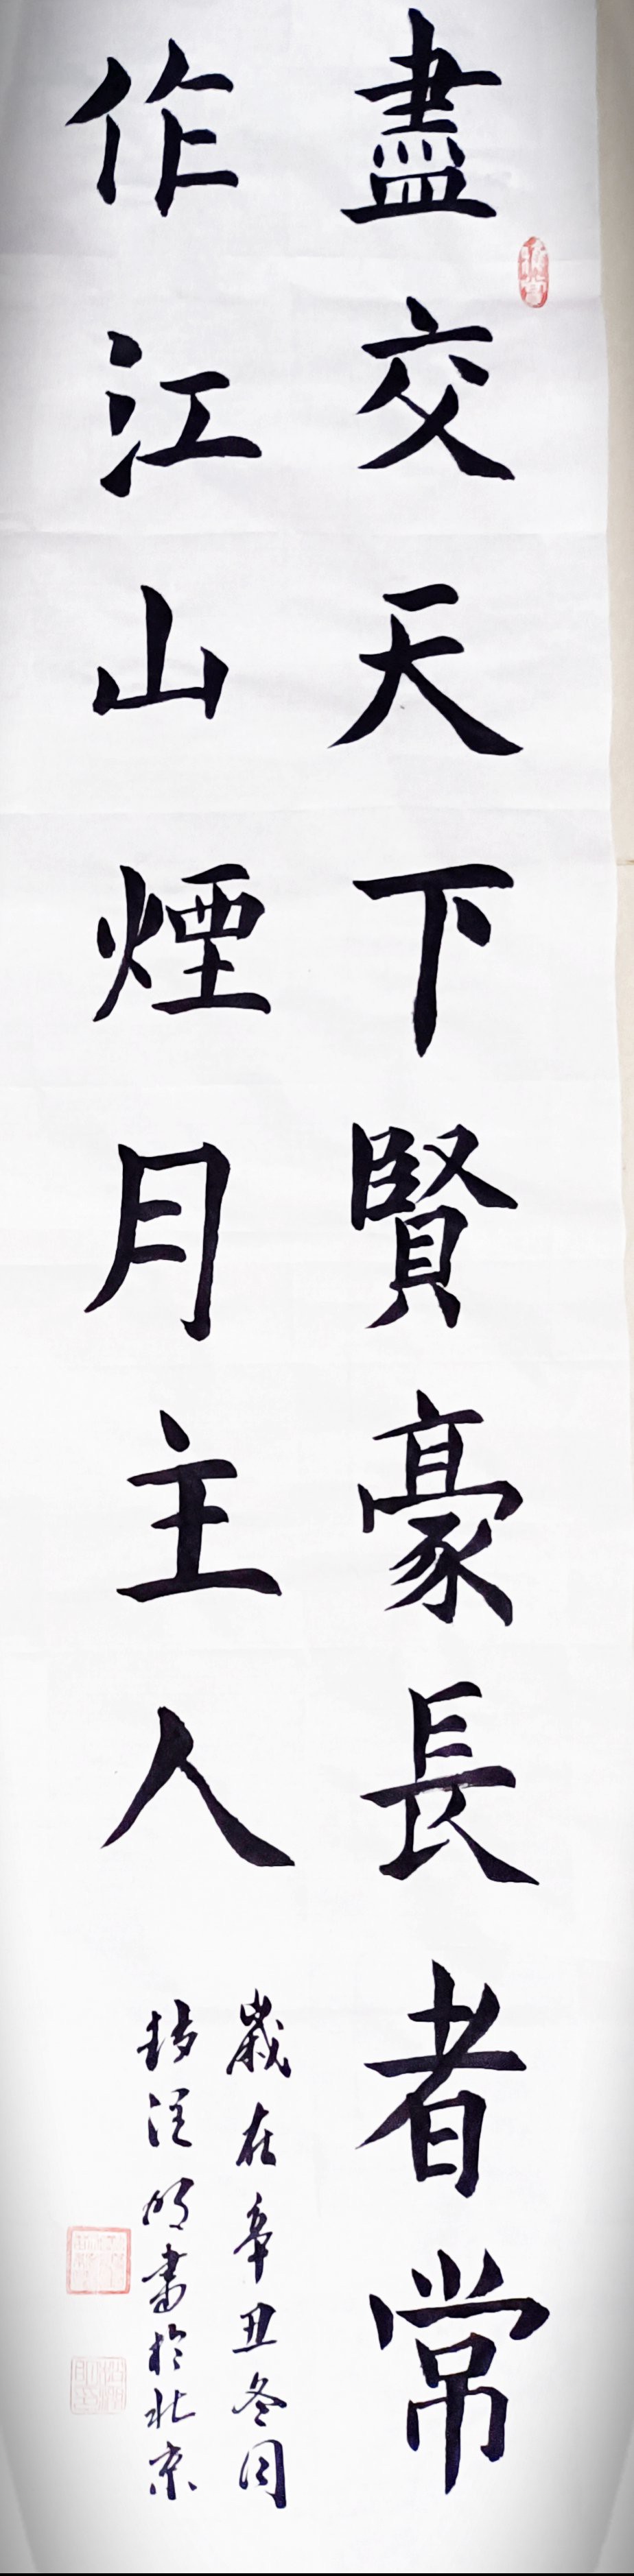 盡交天下賢豪長者常
作江山煙月主人
歲在辛丑冬月
明書於北京